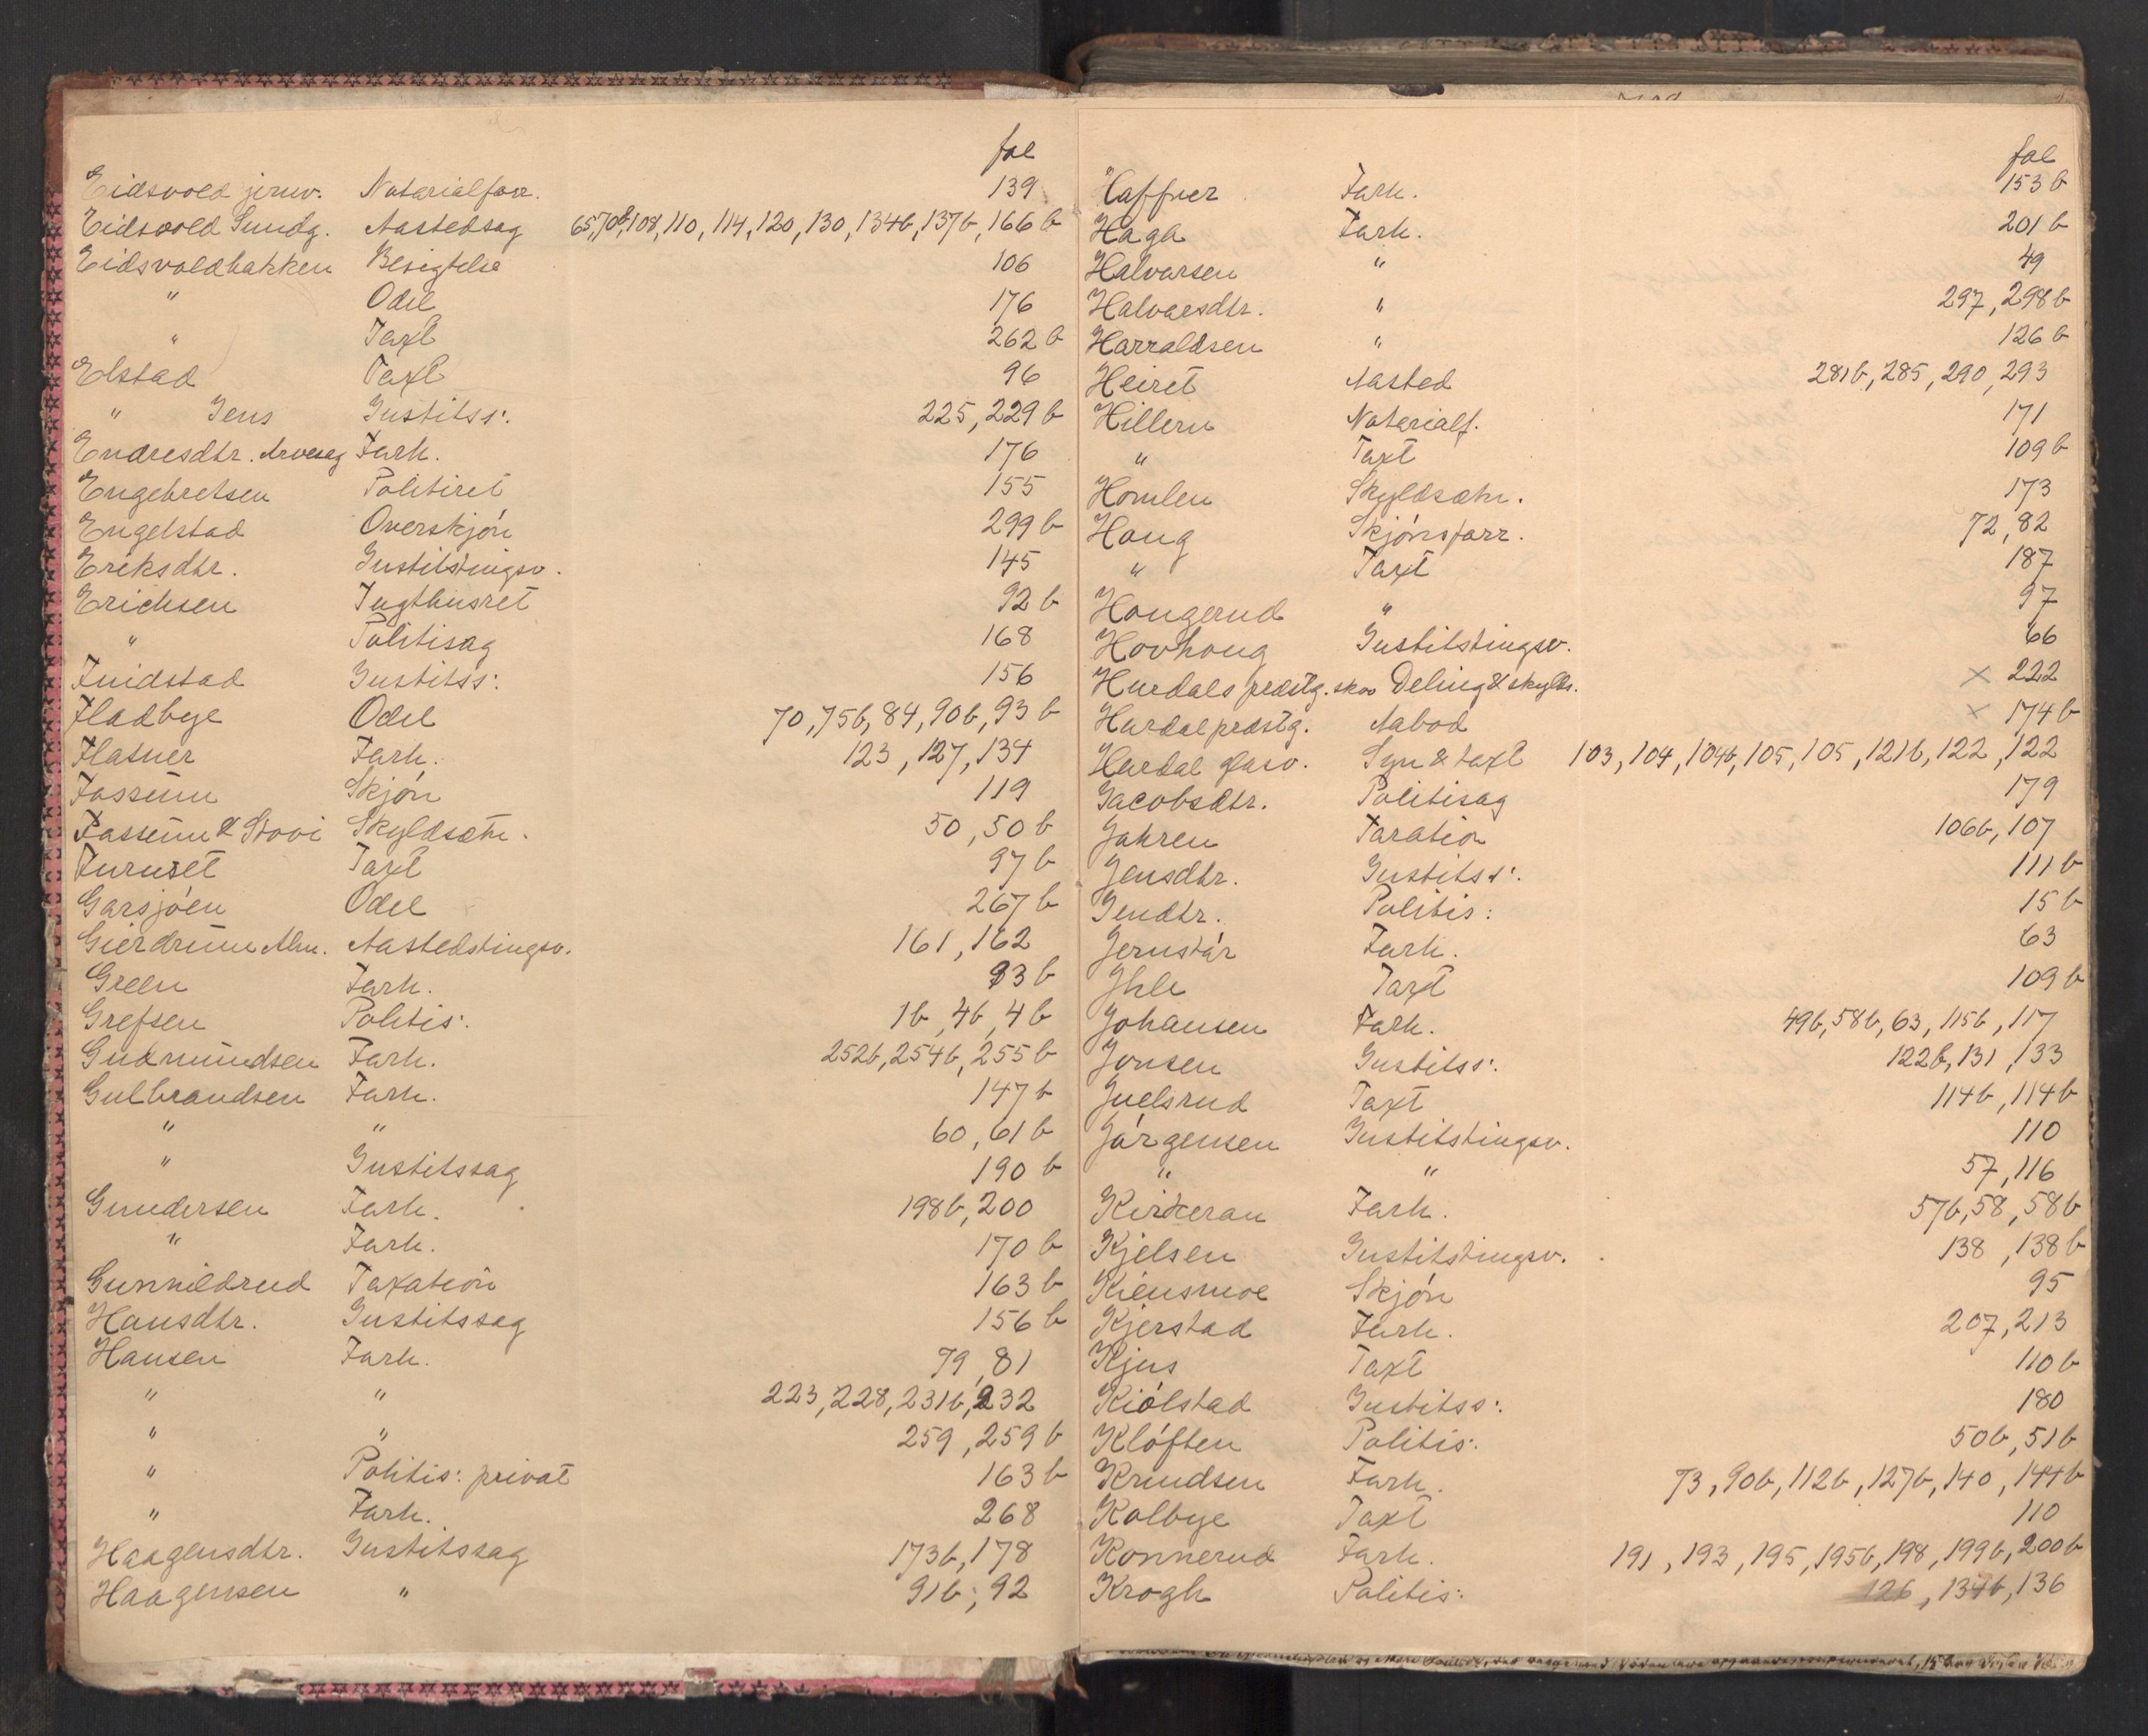 fol
Eidsvold jernv. Notarialforr. 139
Eidsvold Sundg. Aastedsag 65, 70b, 108, 110, 114, 120, 130, 134b, 137b, 166 b
Eidsvoldbakken Besigtelse 106
" Odel 176
" Taxt 262 b
Elstad Taxt 96
" Jens Justitss: 225, 229 b
Endresdtr. Arvesag Forh. 176
Engebretsen Politiret 155
Engelstad Overskjön 299 b
Eriksdtr. Justitstingsv. 145
Erichsen Tugthusret 92 b
" Politisag 168
Fnidstad Justitss: 156
Fladbye Odel 70, 75b, 84, 90b, 93 b
Flatner Forh. 123, 127, 134
Fossum Skjön 119
Fossum & Stovi Skyldsætn. 50, 50 b
Furuset Taxt 97 b
Garsjöen Odel 267 b
Gierdrum Alm. Aastedstingsv. 161, 162
Green Forh. 93 b
Grefsen Politis: 1b, 4b, 4 b
Gudmundsen Forh. 252b, 254b, 255 b
Gulbrandsen Forh. 147 b
" " 60, 61 b
" Justitssag 190 b
Gundersen Forh. 198b, 200
" Forh. 170 b
Gunnildrud Taxation 163 b
Hansdtr. Justitssag 156 b
Hansen Forh. 79, 81
" " 223, 228, 231b, 232
" " 259, 259 b
" Politis: privat 163 b
" Forh. 268
Haagensdtr. Justitssag 173b, 178
Haagensen " 91b, 92
fol
Haffner Forh. 153 b
Haga Forh. 201 b
Halvorsen " 49
Halvorsdtr. " 297, 298 b
Harraldsen " 126 b
Heiret Aasted 281b, 285, 290, 293
Hillern Notarialf. 171
" Taxt 109 b
Homlen Skyldsætn. 173
Houg Skjönsforr. 72, 82
" Taxt 187
Hougerud " 97
Hovhoug Justitstingsv. 66
Hurdals præstg. skov Deling & skylds. x 222
Hurdal præstg. Aabod x 174 b
Hurdal glasv. Syn & taxt 103, 104, 104b, 105, 105, 121b, 122, 122
Jacobsdtr. Politisag 179
Jahren Taxation 106b, 107
Jensdtr. Justitss: 111 b
Jendtr. Politis: 15 b
Jernskär Forh. 63
Ihle Taxt 109 b
Johansen Forh. 49b, 58b, 63, 115b, 117
Jonsen Justitss: 122b, 131, 133
Juelsrud Taxt 114b, 114b
Jörgensen Justitstingsv. 110
" " 57, 116
Kirkeran Forh. 57b, 58, 58b
Kjelsen Justitstingsv. 138, 138 b
Kiensmoe Skjön 95
Kjerstad Forh. 207, 213
Kjus Taxt 110 b
Kiölstad Justitss: 180
Klöften Politis: 50b, 51b
Knudsen Forh. 73, 90b, 112b, 127b, 140, 144b
Kolbye Taxt 110
Konnerud Forh. 191, 193, 195, 195b, 198, 199b, 200b
Krogh Politis: 126, 134b, 136